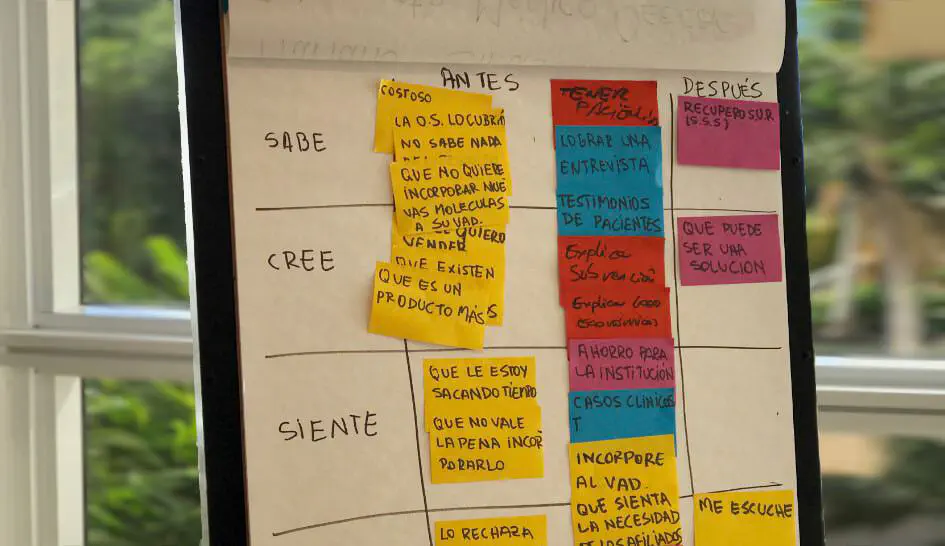 ANTES
DESPUÉS
SABE
COSTOSO
LA O.S. LO CUBRIRÁ
NO SABE NADA
QUE NO QUIERE
INCORPORAR NUE
VAS MOLECULAS
A SU VAD.
QUIERO
VENDER
CREE
QUE EXISTEN
QUE ES UN
PRODUCTO MÁS
TENER
PACIENCIA
LOGRAR UNA
ENTREVISTA
TESTIMONIOS
DE PACIENTES
Explicar
Subvención
Explicar
AHORRO PARA
LA INSTITUCIÓN
CASOS CLÍNICOS
T
INCORPORE
AL VAD.
QUE SIENTA
LA NECESIDAD
DE LOS AFILIADOS
RECUPERO S.U.R
(S.S.S)
QUE PUEDE
SER UNA
SOLUCIÓN
SIENTE
QUE LE ESTOY
SACANDO TIEMPO
QUE NO VALE
LA PENA INCOR
PORARLO
LO RECHAZA
ME ESCUCHE